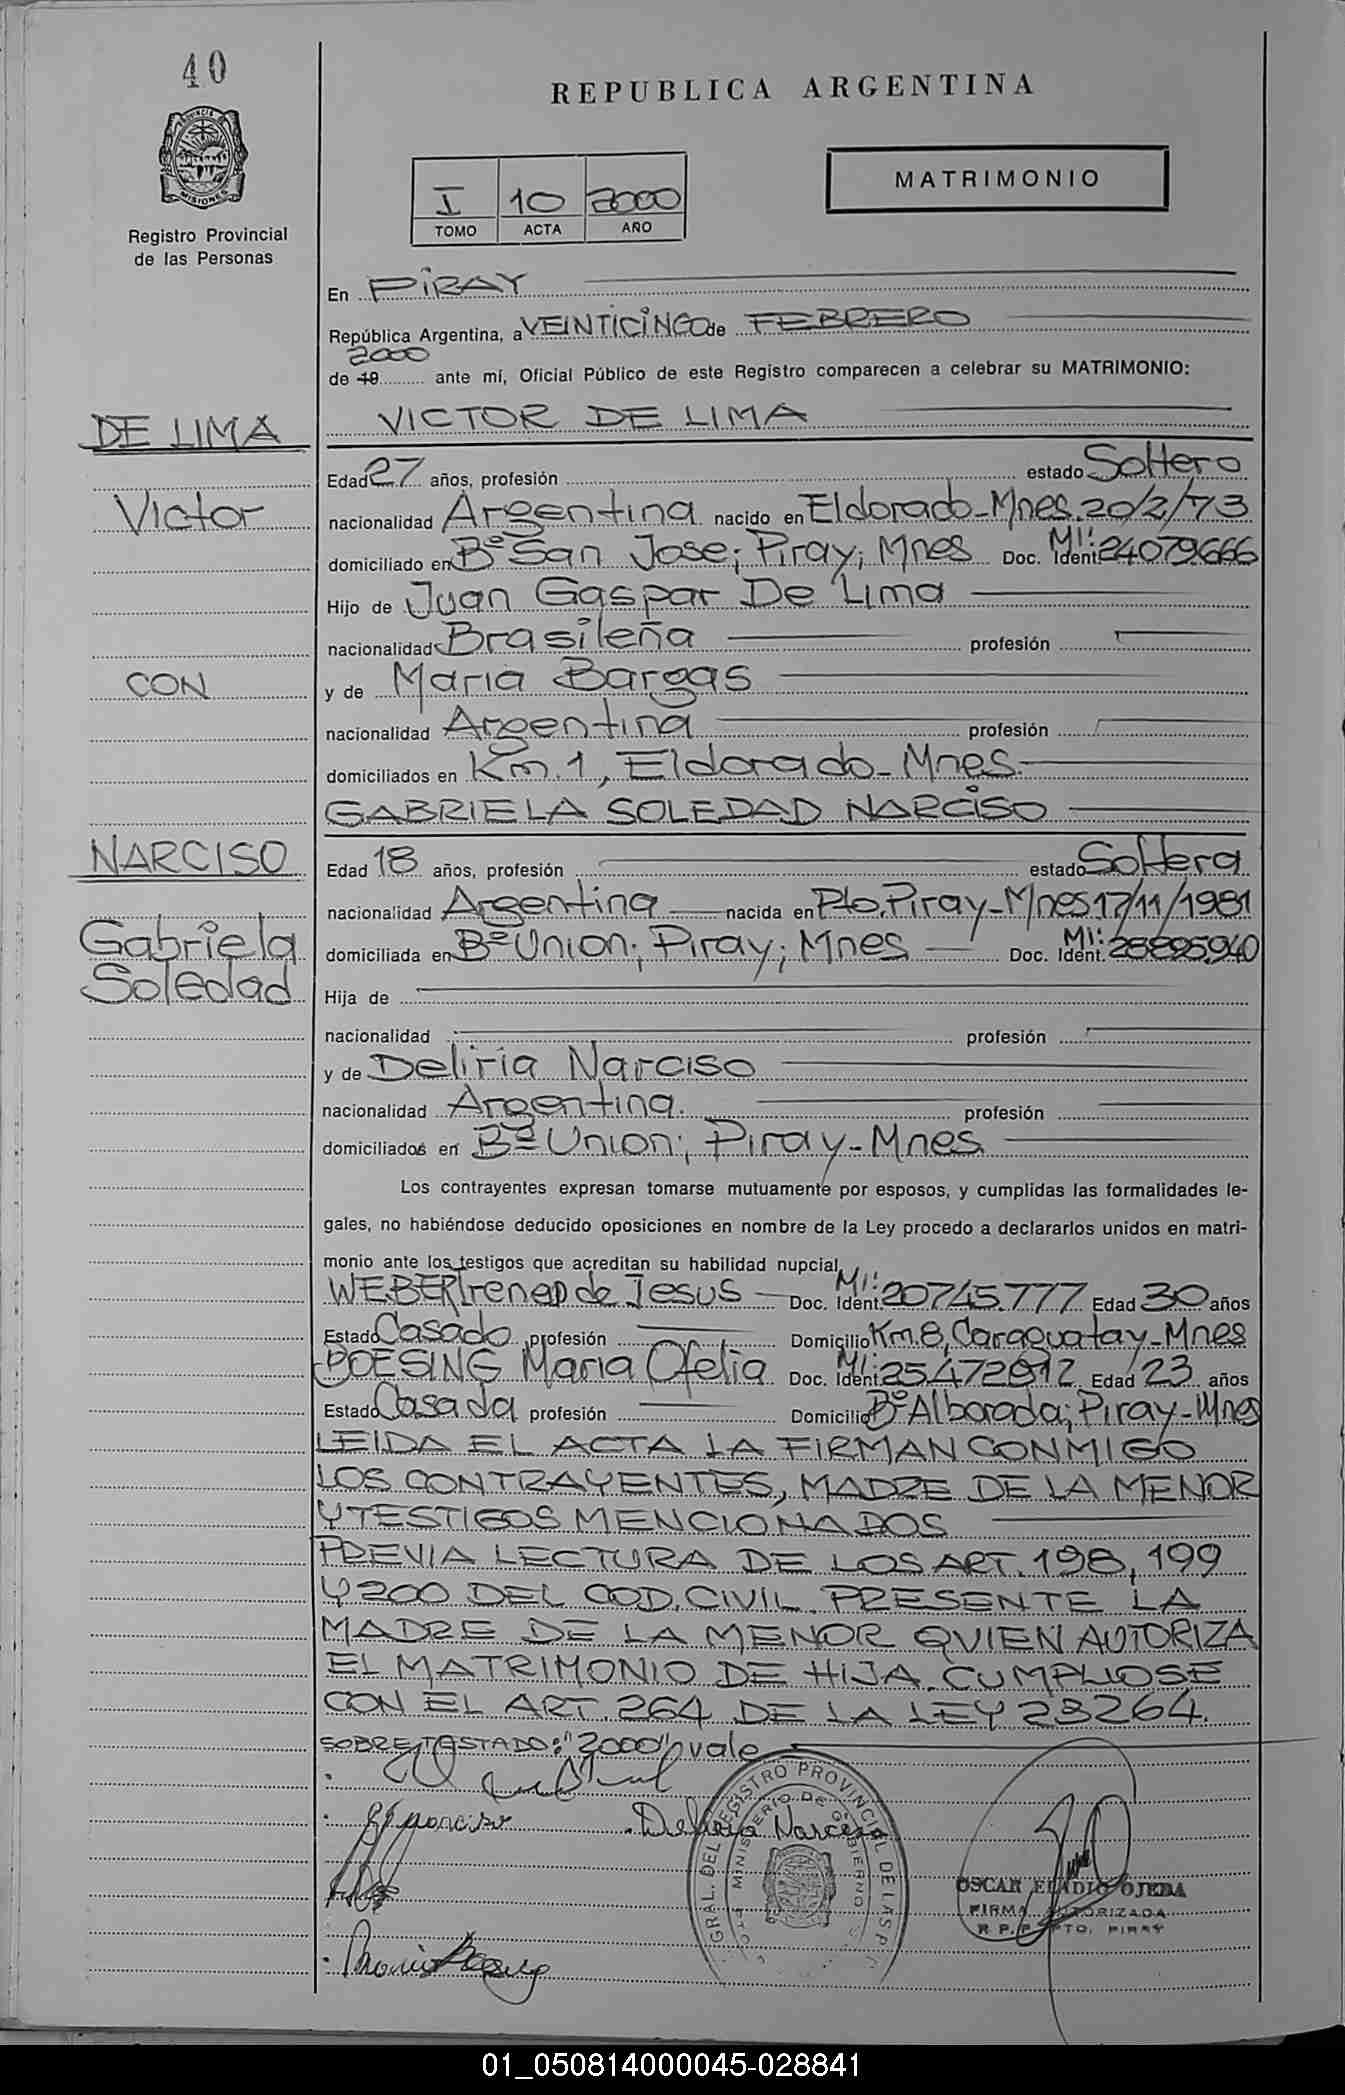 40
REPUBLICA ARGENTINA
PROVINCIA DE
MISIONES
I 10 2000
TOMO ACTA AÑO
MATRIMONIO
Registro Provincial
de las Personas
En PIRAY
República Argentina, a VEINTICINCO de FEBRERO
2000
de 19 ante mí, Oficial Público de este Registro comparecen a celebrar su MATRIMONIO:
DE LIMA
VICTOR DE LIMA
Edad 27 años, profesión estado Soltero
Victor
nacionalidad Argentina nacido en Eldorado-Mnes. 20/2/73
domiciliado en Bº San Jose; Piray; Mnes Doc. Ident. MI: 24079.666
Hijo de Juan Gaspar De Lima
nacionalidad Brasileña profesión
CON
y de Maria Bargas
nacionalidad Argentina profesión
domiciliados en Km. 1, Eldorado-Mnes.
GABRIELA SOLEDAD NARCISO
NARCISO
Edad 18 años, profesión estado Soltera
nacionalidad Argentina nacida en Pto. Piray-Mnes 17/11/1981
Gabriela
domiciliada en Bº Union; Piray; Mnes Doc. Ident. MI: 28895.940
Soledad
Hija de
nacionalidad profesión
y de Deliria Narciso
nacionalidad Argentina. profesión
domiciliados en Bº Union; Piray-Mnes
Los contrayentes expresan tomarse mutuamente por esposos, y cumplidas las formalidades le-
gales, no habiéndose deducido oposiciones en nombre de la Ley procedo a declararlos unidos en matri-
monio ante los testigos que acreditan su habilidad nupcial
WEBER Ireneo de Jesus Doc. Ident. MI: 20745.777 Edad 30 años
Estado Casado profesión Domicilio Km. 8, Caraguatay-Mnes
BOESING Maria Ofelia Doc. Ident. MI: 25.472812 Edad 23 años
Estado Casada profesión Domicilio Bº Alborada; Piray-Mnes
LEIDA EL ACTA LA FIRMAN CONMIGO
LOS CONTRAYENTES, MADRE DE LA MENOR
Y TESTIGOS MENCIONADOS
PREVIA LECTURA DE LOS ART. 198, 199
Y 200 DEL COD. CIVIL. PRESENTE LA
MADRE DE LA MENOR QUIEN AUTORIZA
EL MATRIMONIO DE HIJA. CUMPLIOSE
CON EL ART. 264 DE LA LEY 23264.
SOBRE TASTADO: "2000" vale
GRAL. DEL REGISTRO PROVINCIAL DE LAS P
MINISTERIO DE GOBIERNO
Deliria Narciso
OSCAR ELADIO OJEDA
FIRMA AUTORIZADA
R.P.P. PTO. PIRAY
01_050814000045-028841